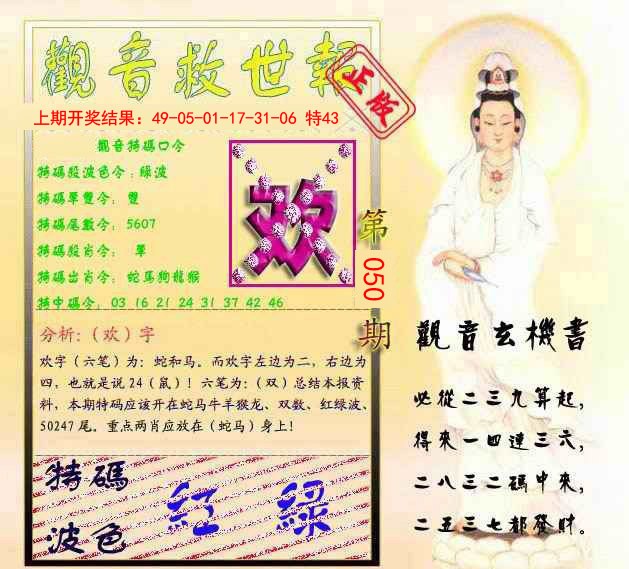 觀音救世報
正版
上期开奖结果：49-05-01-17-31-06 特43
觀音特碼口令
特碼段波色令：綠波
特碼單雙令： 雙
特碼尾數令： 5607
特碼段肖令： 單
特碼出肖令： 蛇馬狗龍猴
特中碼令： 03 16 21 24 31 37 42 46
欢
第
050
期
分析:（欢）字
欢字（六笔）为：蛇和马。而欢字左边为二，右边为
四，也就是说24（鼠）！六笔为：（双）总结本报资
料，本期特码应该开在蛇马牛羊猴龙、双数、红绿波、
50247尾。重点两肖应放在（蛇马）身上！
特碼
波色
紅 綠
觀音玄機書
必從二三九算起，
得來一四連三六，
二八三二碼中來，
二五三七都發財。